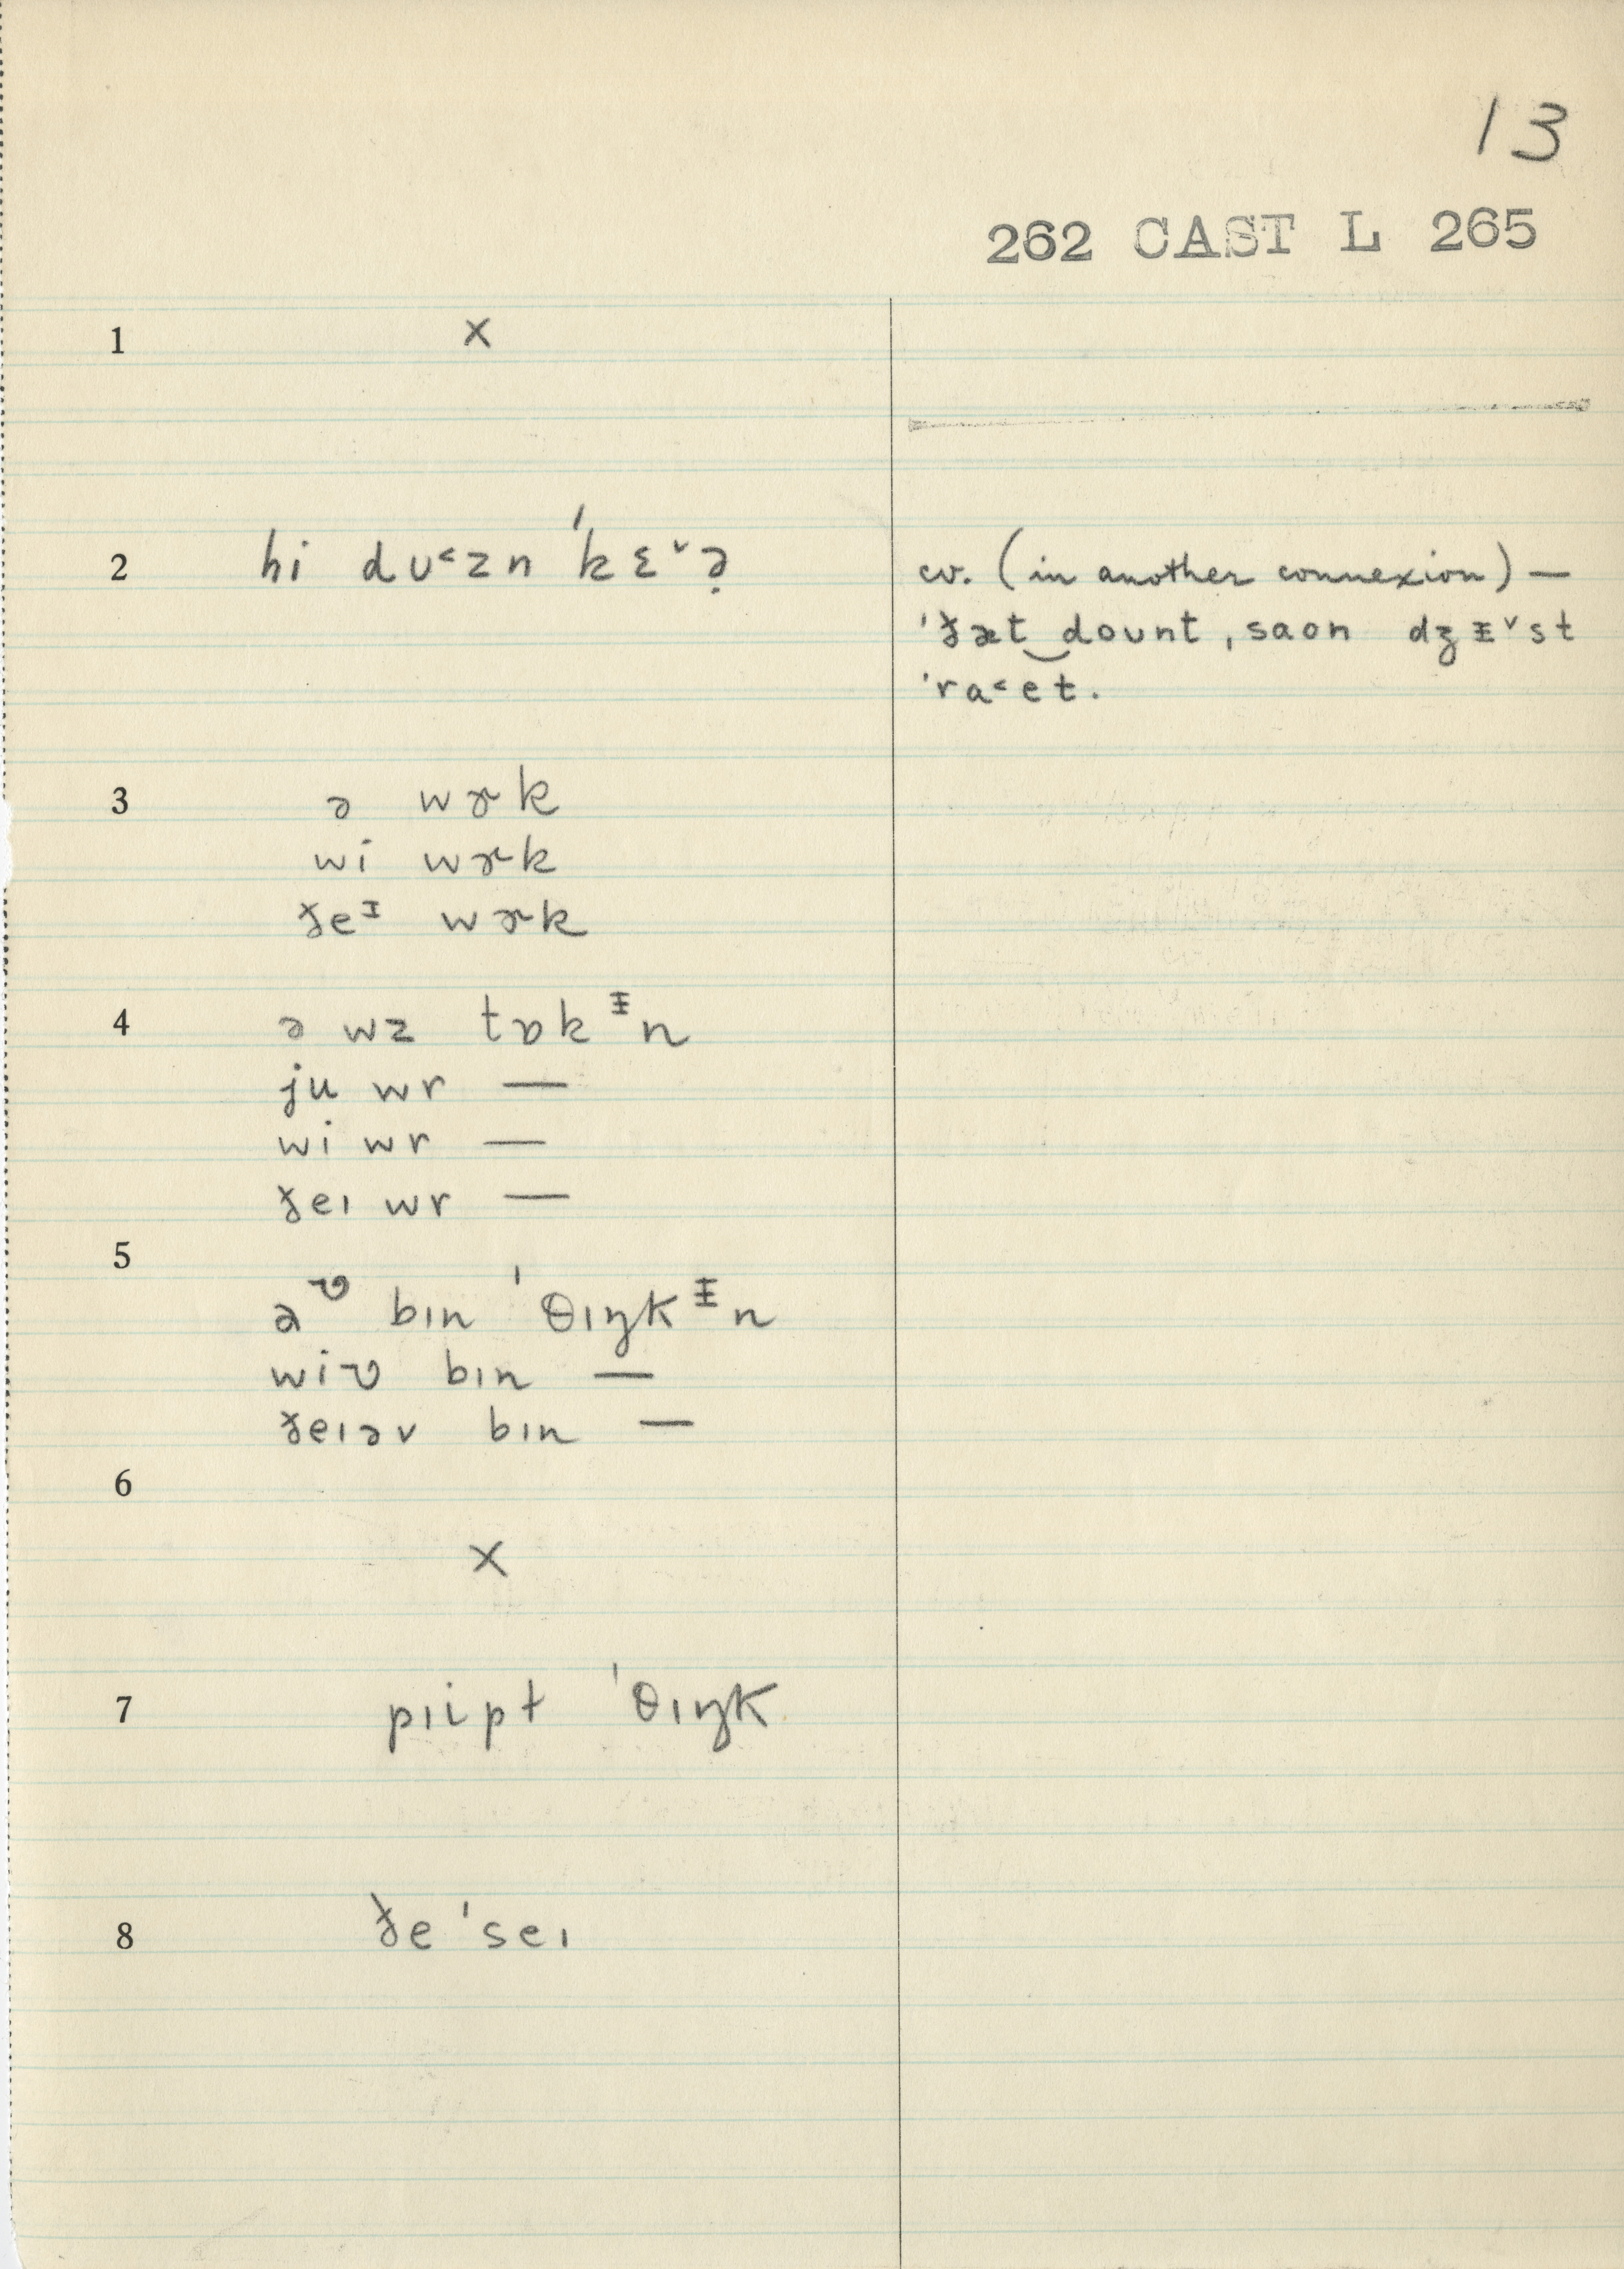 13
262 CAST L 265
1 ×
2 hi dʊ˂zn ˈkɛ˅ə̣
cv. (in another connexion) —
ˈðæt‿doʊnt, saon dʒᵻ˅st
ˈra˂et.
3 ə wɚk
wi wɚk
ðeᶦ wɚk
4 ə wz tɒkᵻn
ju wr —
wi wr —
ðeɪ wr —
5
bɪn ˈθɪŋkᵻn
bɪn —
ðeɪəv bɪn —
6
×
7 pɪipt ˈθɪŋk
8 ðe ˈseɪ